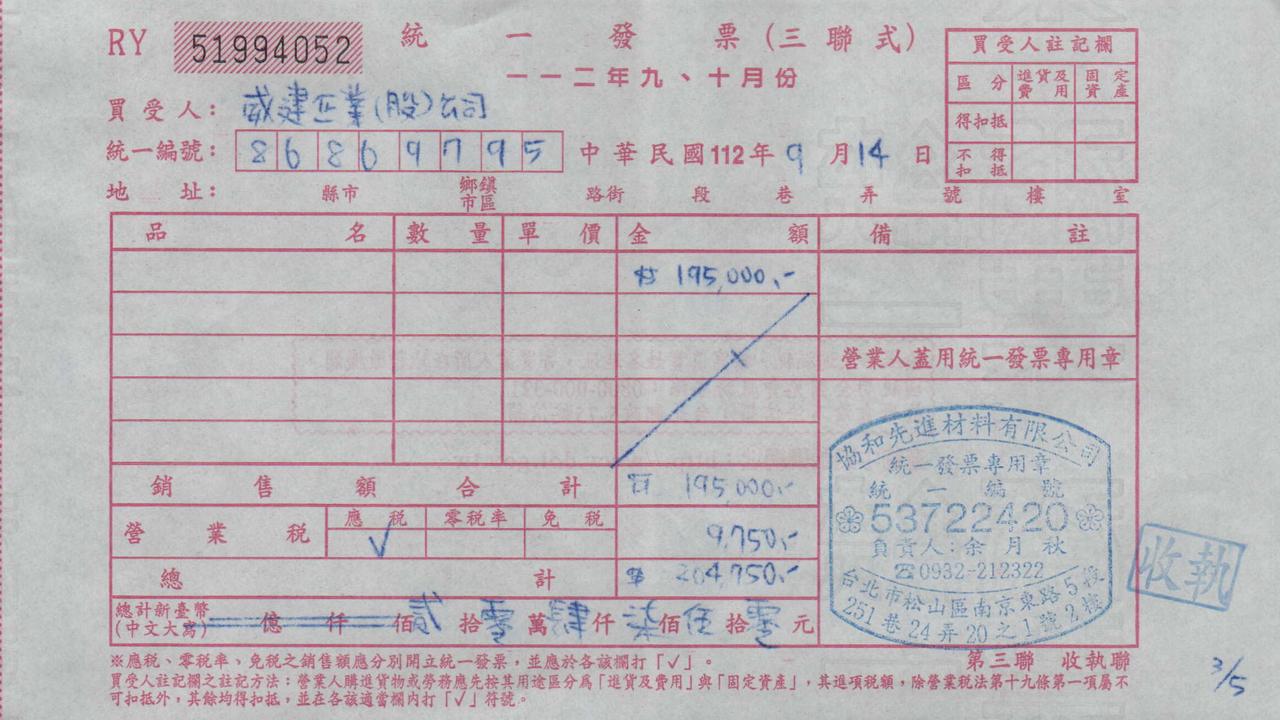 RY 51994052 統一發票(三聯式)
一一二年九、十月份
買受人註記欄
區分 進貨及費用 固定資產
得扣抵
不得扣抵
買受人: 威建企業(股)公司
統一編號: 86869795 中華民國112年9月14日
地址: 縣市 鄉鎮市區 路街 段 巷 弄 號 樓 室
品名 數量 單價 金額 備註
$ 195,000.-
營業人蓋用統一發票專用章
銷售額合計 $ 195,000.-
營業稅 應稅 零稅率 免稅 9,750.-
✓
總計 $ 204,750.-
總計新臺幣(中文大寫) 億 仟 佰 貳 拾 零 萬 肆 仟 柒 佰 伍 拾 零 元
協和先進材料有限公司
統一發票專用章
統一編號
53722420
負責人:余月秋
☎0932-212322
台北市松山區南京東路5段
251巷24弄20之1號2樓
收執
第三聯 收執聯
3/5
※應稅、零稅率、免稅之銷售額應分別開立統一發票,並應於各該欄打「✓」。
買受人註記欄之註記方法:營業人購進貨物或勞務應先按其用途區分為「進貨及費用」與「固定資產」,其進項稅額,除營業稅法第十九條第一項屬不
可扣抵外,其餘均得扣抵,並在各該適當欄內打「✓」符號。